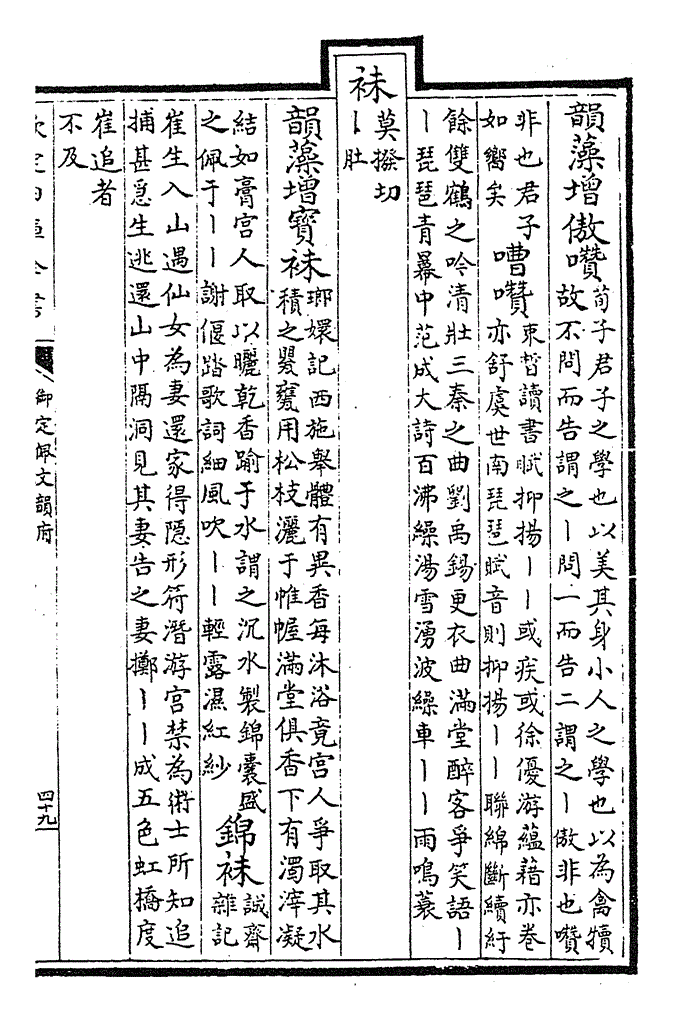 韻藻增傲囋
荀子君子之學也以美其身小人之學也以為禽犢
故不問而告謂之丨問一而告二謂之丨傲非也囋
非也君子
如嚮矣
嘈囋
束晳讀書賦抑揚丨丨或疾或徐優游蘊藉亦卷
亦舒虞世南琵琶賦音則抑揚丨丨聯綿斷續紆
餘雙鶴之吟清壯三秦之曲劉禹錫更衣曲滿堂醉客爭笑語丨
丨琵琶青幕中范成大詩百沸繰湯雪湧波繰車丨丨雨鳴蓑
袜
莫撥切
丨肚
韻藻增寶袜
瑯嬛記西施舉體有異香每沐浴竟宮人爭取其水
積之甖甕用松枝灑于帷幄滿堂俱香下有濁滓凝
結如膏宮人取以曬乾香踰于水謂之沉水製錦囊盛
之佩于丨丨謝偃踏歌詞細風吹丨丨輕露濕紅紗
錦袜
誠齋
雜記
崔生入山遇仙女為妻還家得隱形符潛游宮禁為術士所知追
捕甚急生逃還山中隔洞見其妻告之妻擲丨丨成五色虹橋度
崔追者
不及
欽定四庫全書
御定佩文韻府
四十九